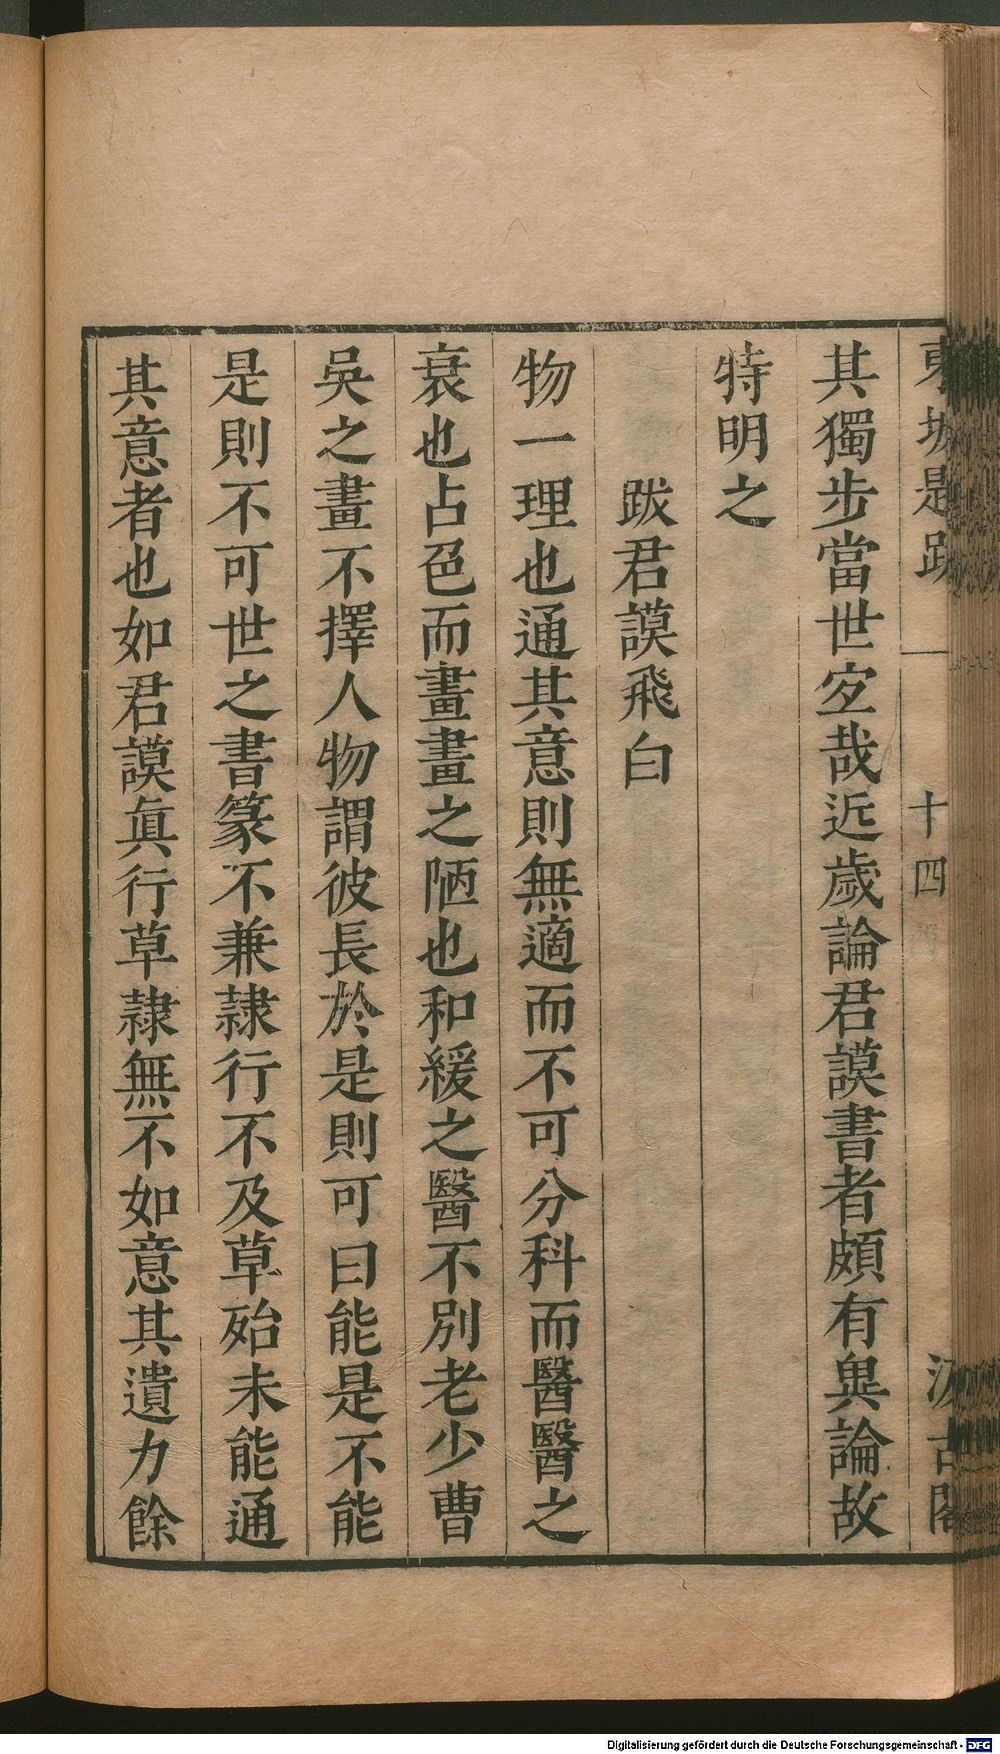 東坡題跋 一 十四 汲古閣
其獨步當世宐哉近歲論君謨書者頗有異論故
特明之
跋君謨飛白
物一理也通其意則無適而不可分科而醫醫之
衰也占色而畫畫之陋也和緩之醫不別老少曹
吳之畫不擇人物謂彼長於是則可曰能是不能
是則不可世之書篆不兼隸行不及草殆未能通
其意者也如君謨眞行草隸無不如意其遺力餘
Digitalisierung gefördert durch die Deutsche Forschungsgemeinschaft - DFG